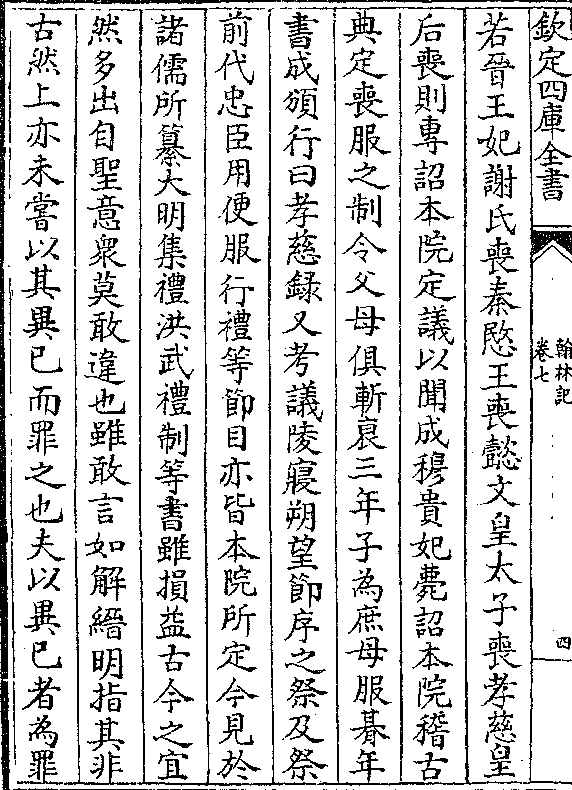 欽定四庫全書
翰林記
卷七
四
若晉王妃謝氏喪秦愍王喪懿文皇太子喪孝慈皇
后喪則專詔本院定議以聞成穆貴妃薨詔本院稽古
典定喪服之制令父母俱斬衰三年子為庶母服朞年
書成頒行曰孝慈録又考議陵寢朔望節序之祭及祭
前代忠臣用便服行禮等節目亦皆本院所定今見於
諸儒所纂大明集禮洪武禮制等書雖損益古今之宜
然多出自聖意衆莫敢違也雖敢言如解縉明指其非
古然上亦未嘗以其異已而罪之也夫以異已者為罪